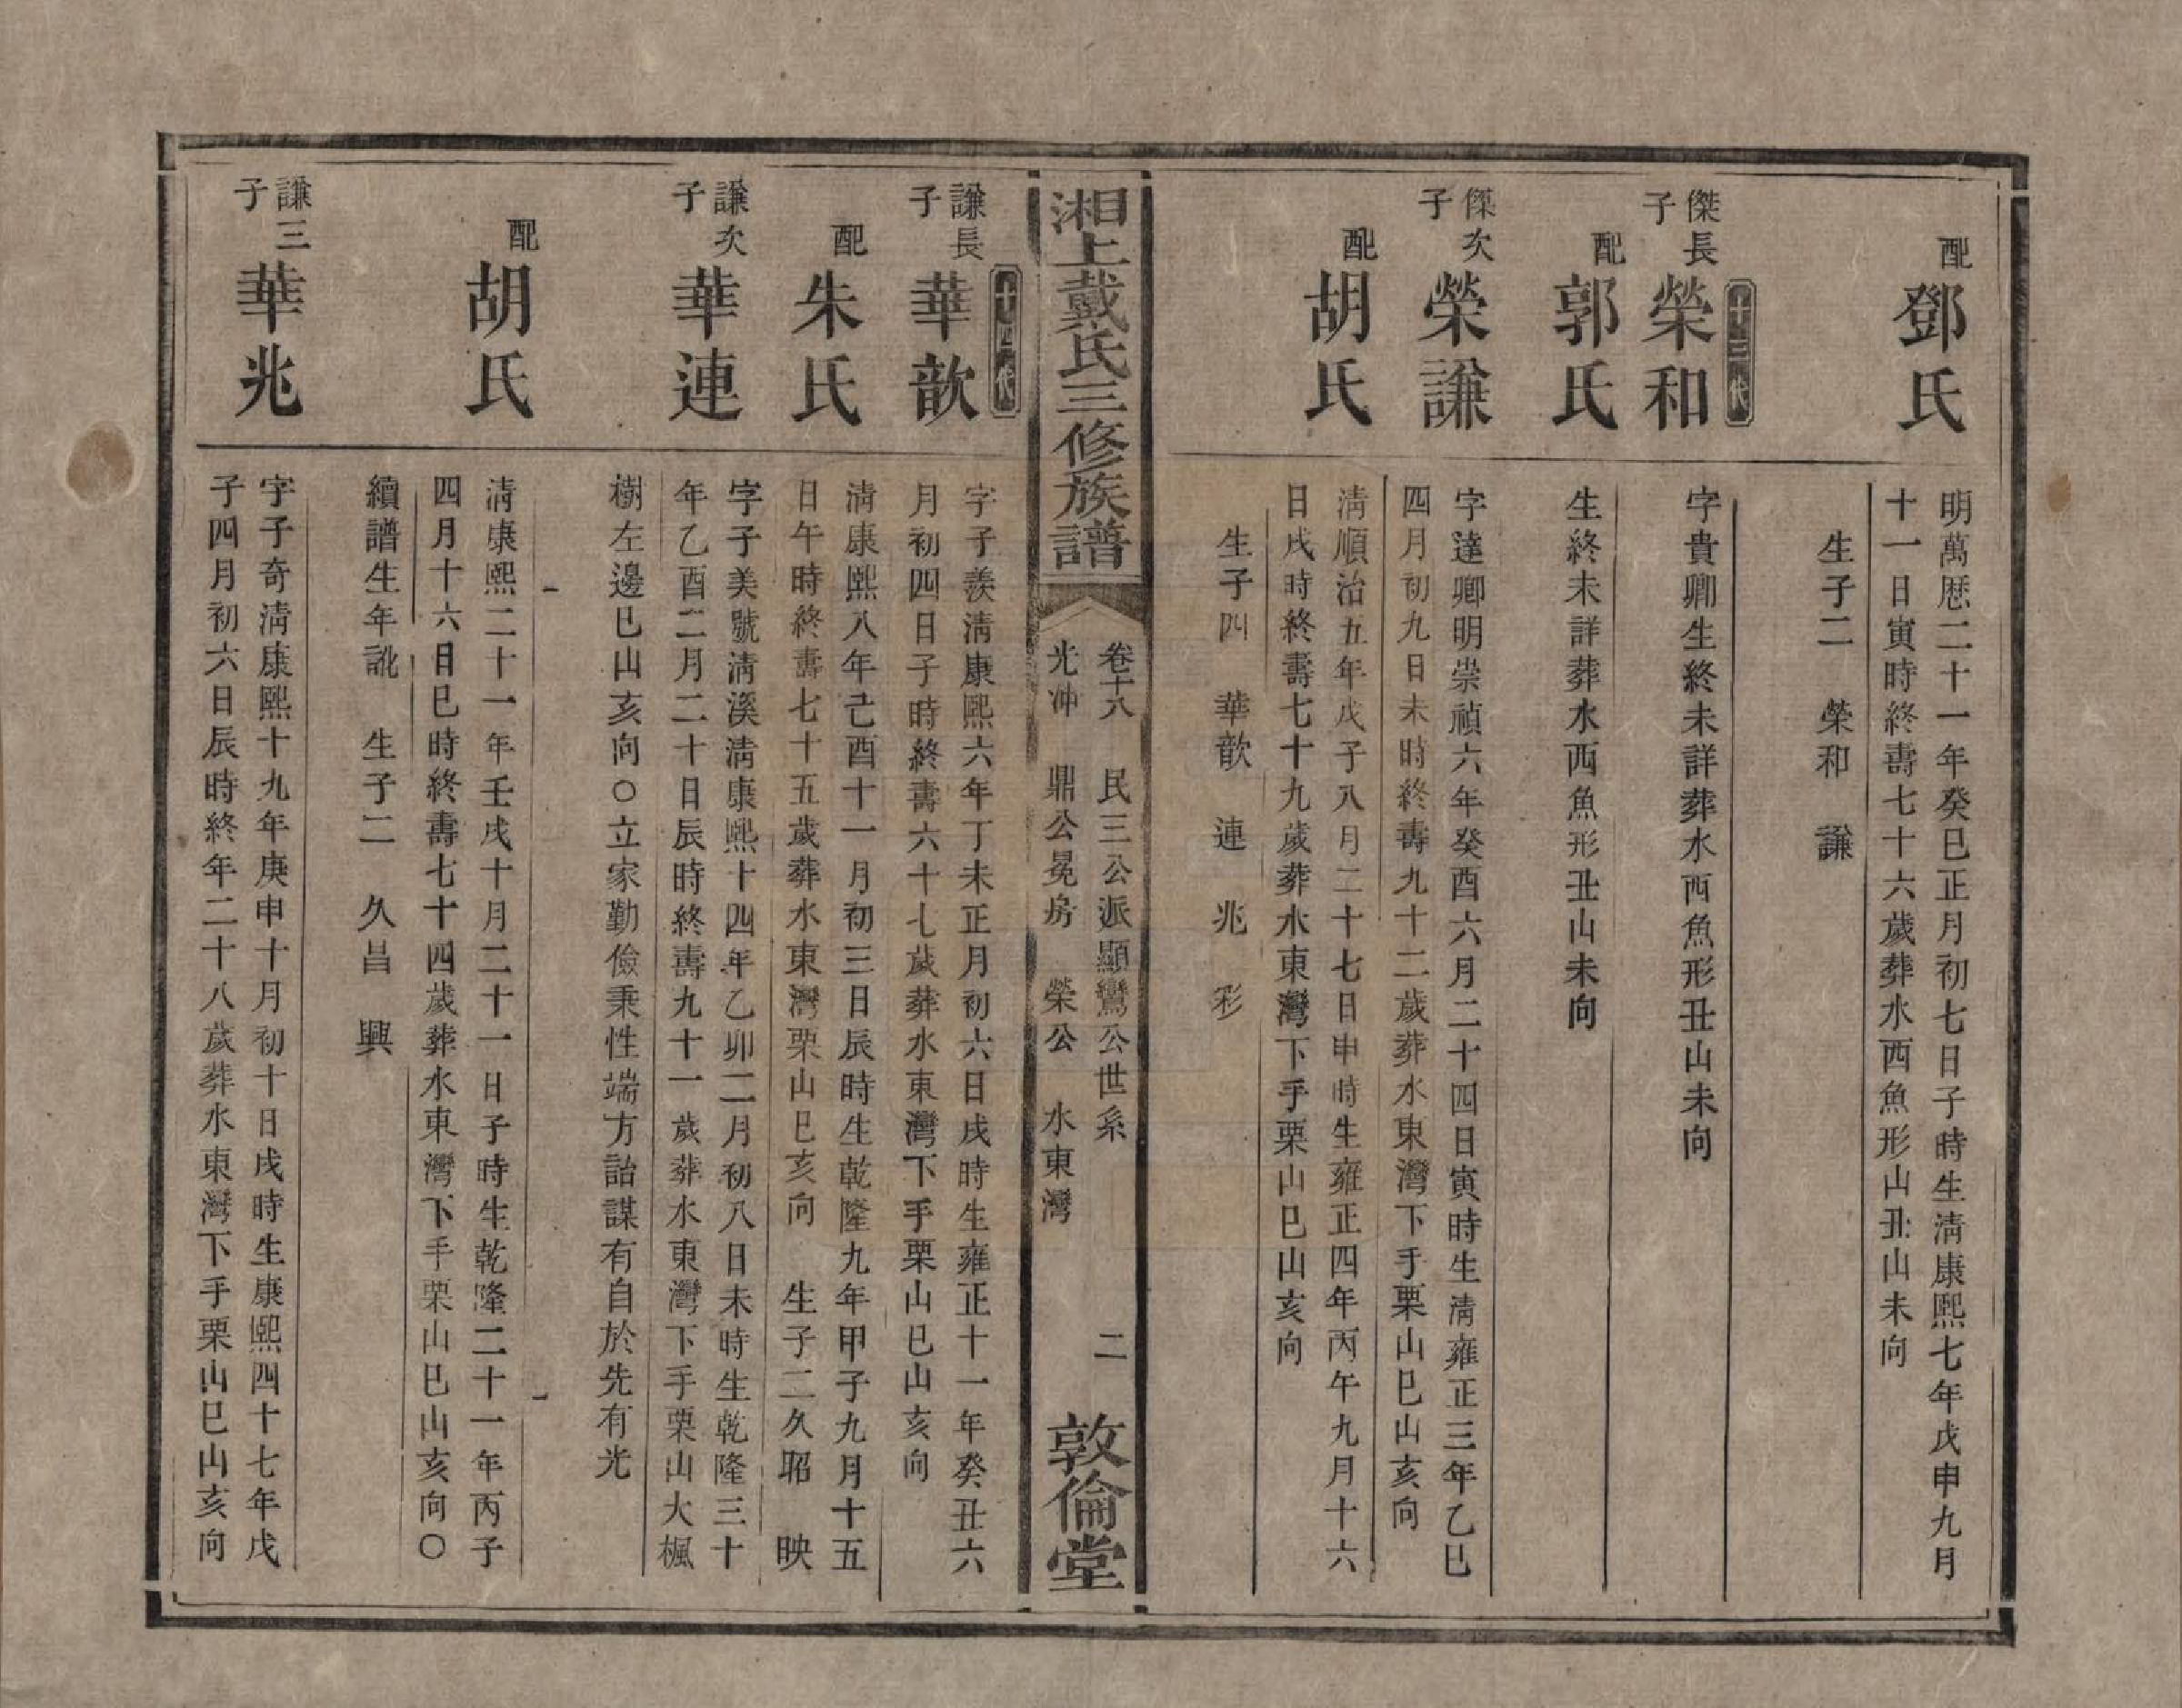 配
鄧氏
明萬厯二十一年癸巳正月初七日子時生淸康熙七年戊申九月
十一日寅時終壽七十六歲葬水西魚形山丑山未向
生子二 榮和 謙
十三代
傑長
子
榮和
字貴卿生終未詳葬水西魚形丑山未向
配
郭氏
生終未詳葬水西魚形丑山未向
傑次
子
榮謙
字達卿明崇禎六年癸酉六月二十四日寅時生淸雍正三年乙巳
四月初九日未時終壽九十二歲葬水東灣下手栗山巳山亥向
配
胡氏
淸順治五年戊子八月二十七日申時生雍正四年丙午九月十六
日戌時終壽七十九歲葬水東灣下手栗山巳山亥向
生子四 華歆 連 兆 彩
湘上戴氏三修族譜
卷十八 民三公派顯鸞公世系
光冲 鼎公冕房 榮公 水東灣
二
敦倫堂
十四代
謙長
子
華歆
字子羨淸康熙六年丁未正月初六日戌時生雍正十一年癸丑六
月初四日子時終壽六十七歲葬水東灣下手栗山巳山亥向
配
朱氏
淸康熙八年己酉十一月初三日辰時生乾隆九年甲子九月十五
日午時終壽七十五歲葬水東灣栗山巳亥向 生子二久昭 映
謙次
子
華連
字子美號淸溪淸康熙十四年乙卯二月初八日未時生乾隆三十
年乙酉二月二十日辰時終壽九十一歲葬水東灣下手栗山大楓
樹左邊巳山亥向○立家勤儉秉性端方詒謀有自於先有光
配
胡氏
淸康熙二十一年壬戌十月二十一日子時生乾隆二十一年丙子
四月十六日巳時終壽七十四歲葬水東灣下手栗山巳山亥向○
續譜生年訛 生子二 久昌 興
謙三
子
華兆
字子奇淸康熙十九年庚申十月初十日戌時生康熙四十七年戊
子四月初六日辰時終年二十八歲葬水東灣下手栗山巳山亥向